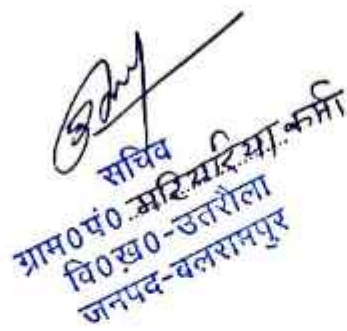 सचिव
ग्राम0 पं0 मरियरिया कर्मा
वि0 ख0-उतरौला
जनपद-बलरामपुर